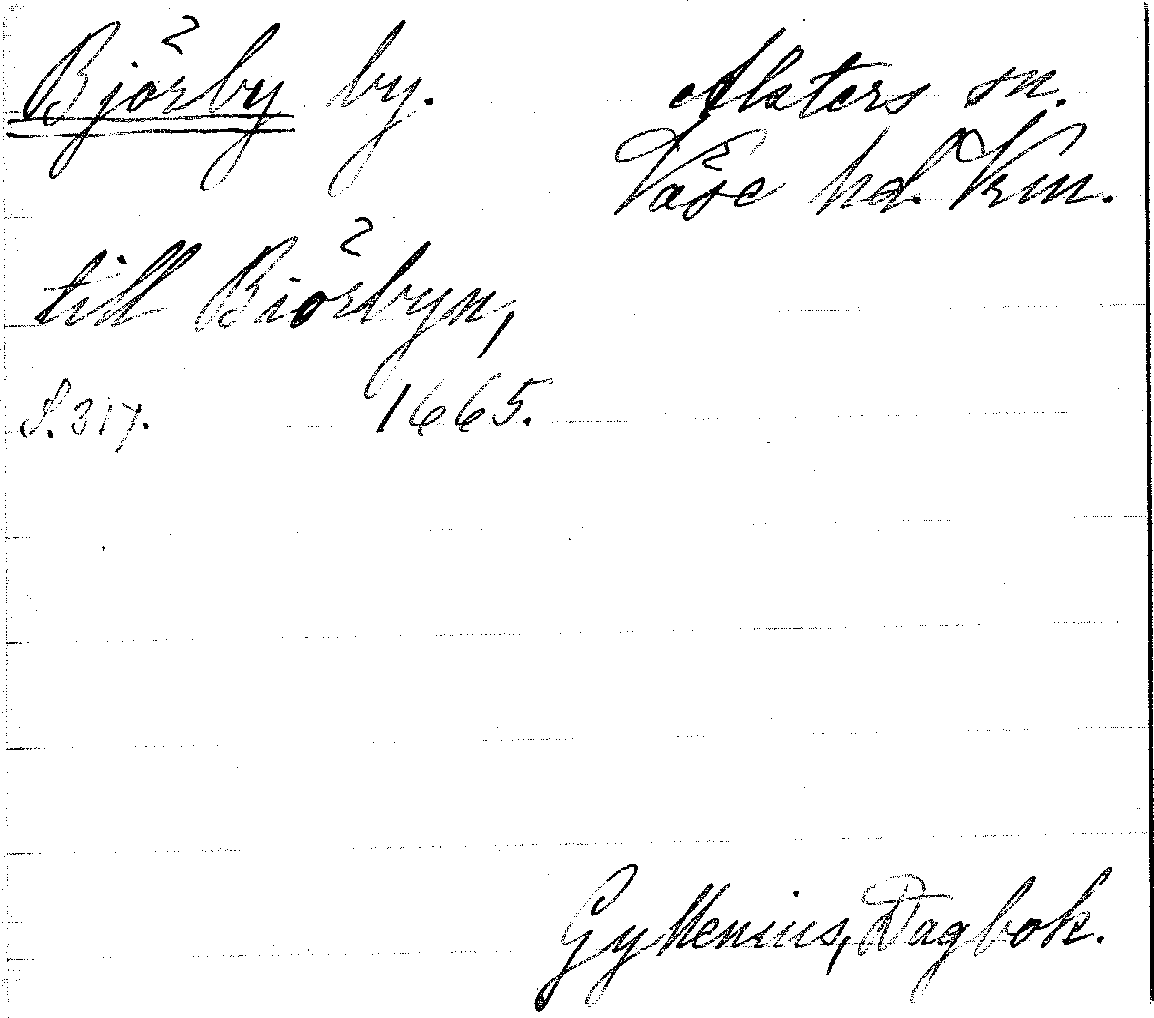 Björby by.
Alsters sn.
Väse hd. Vrm.
till Biörbyn,
S. 317. 1665.
Gyllenius, Dagbok.